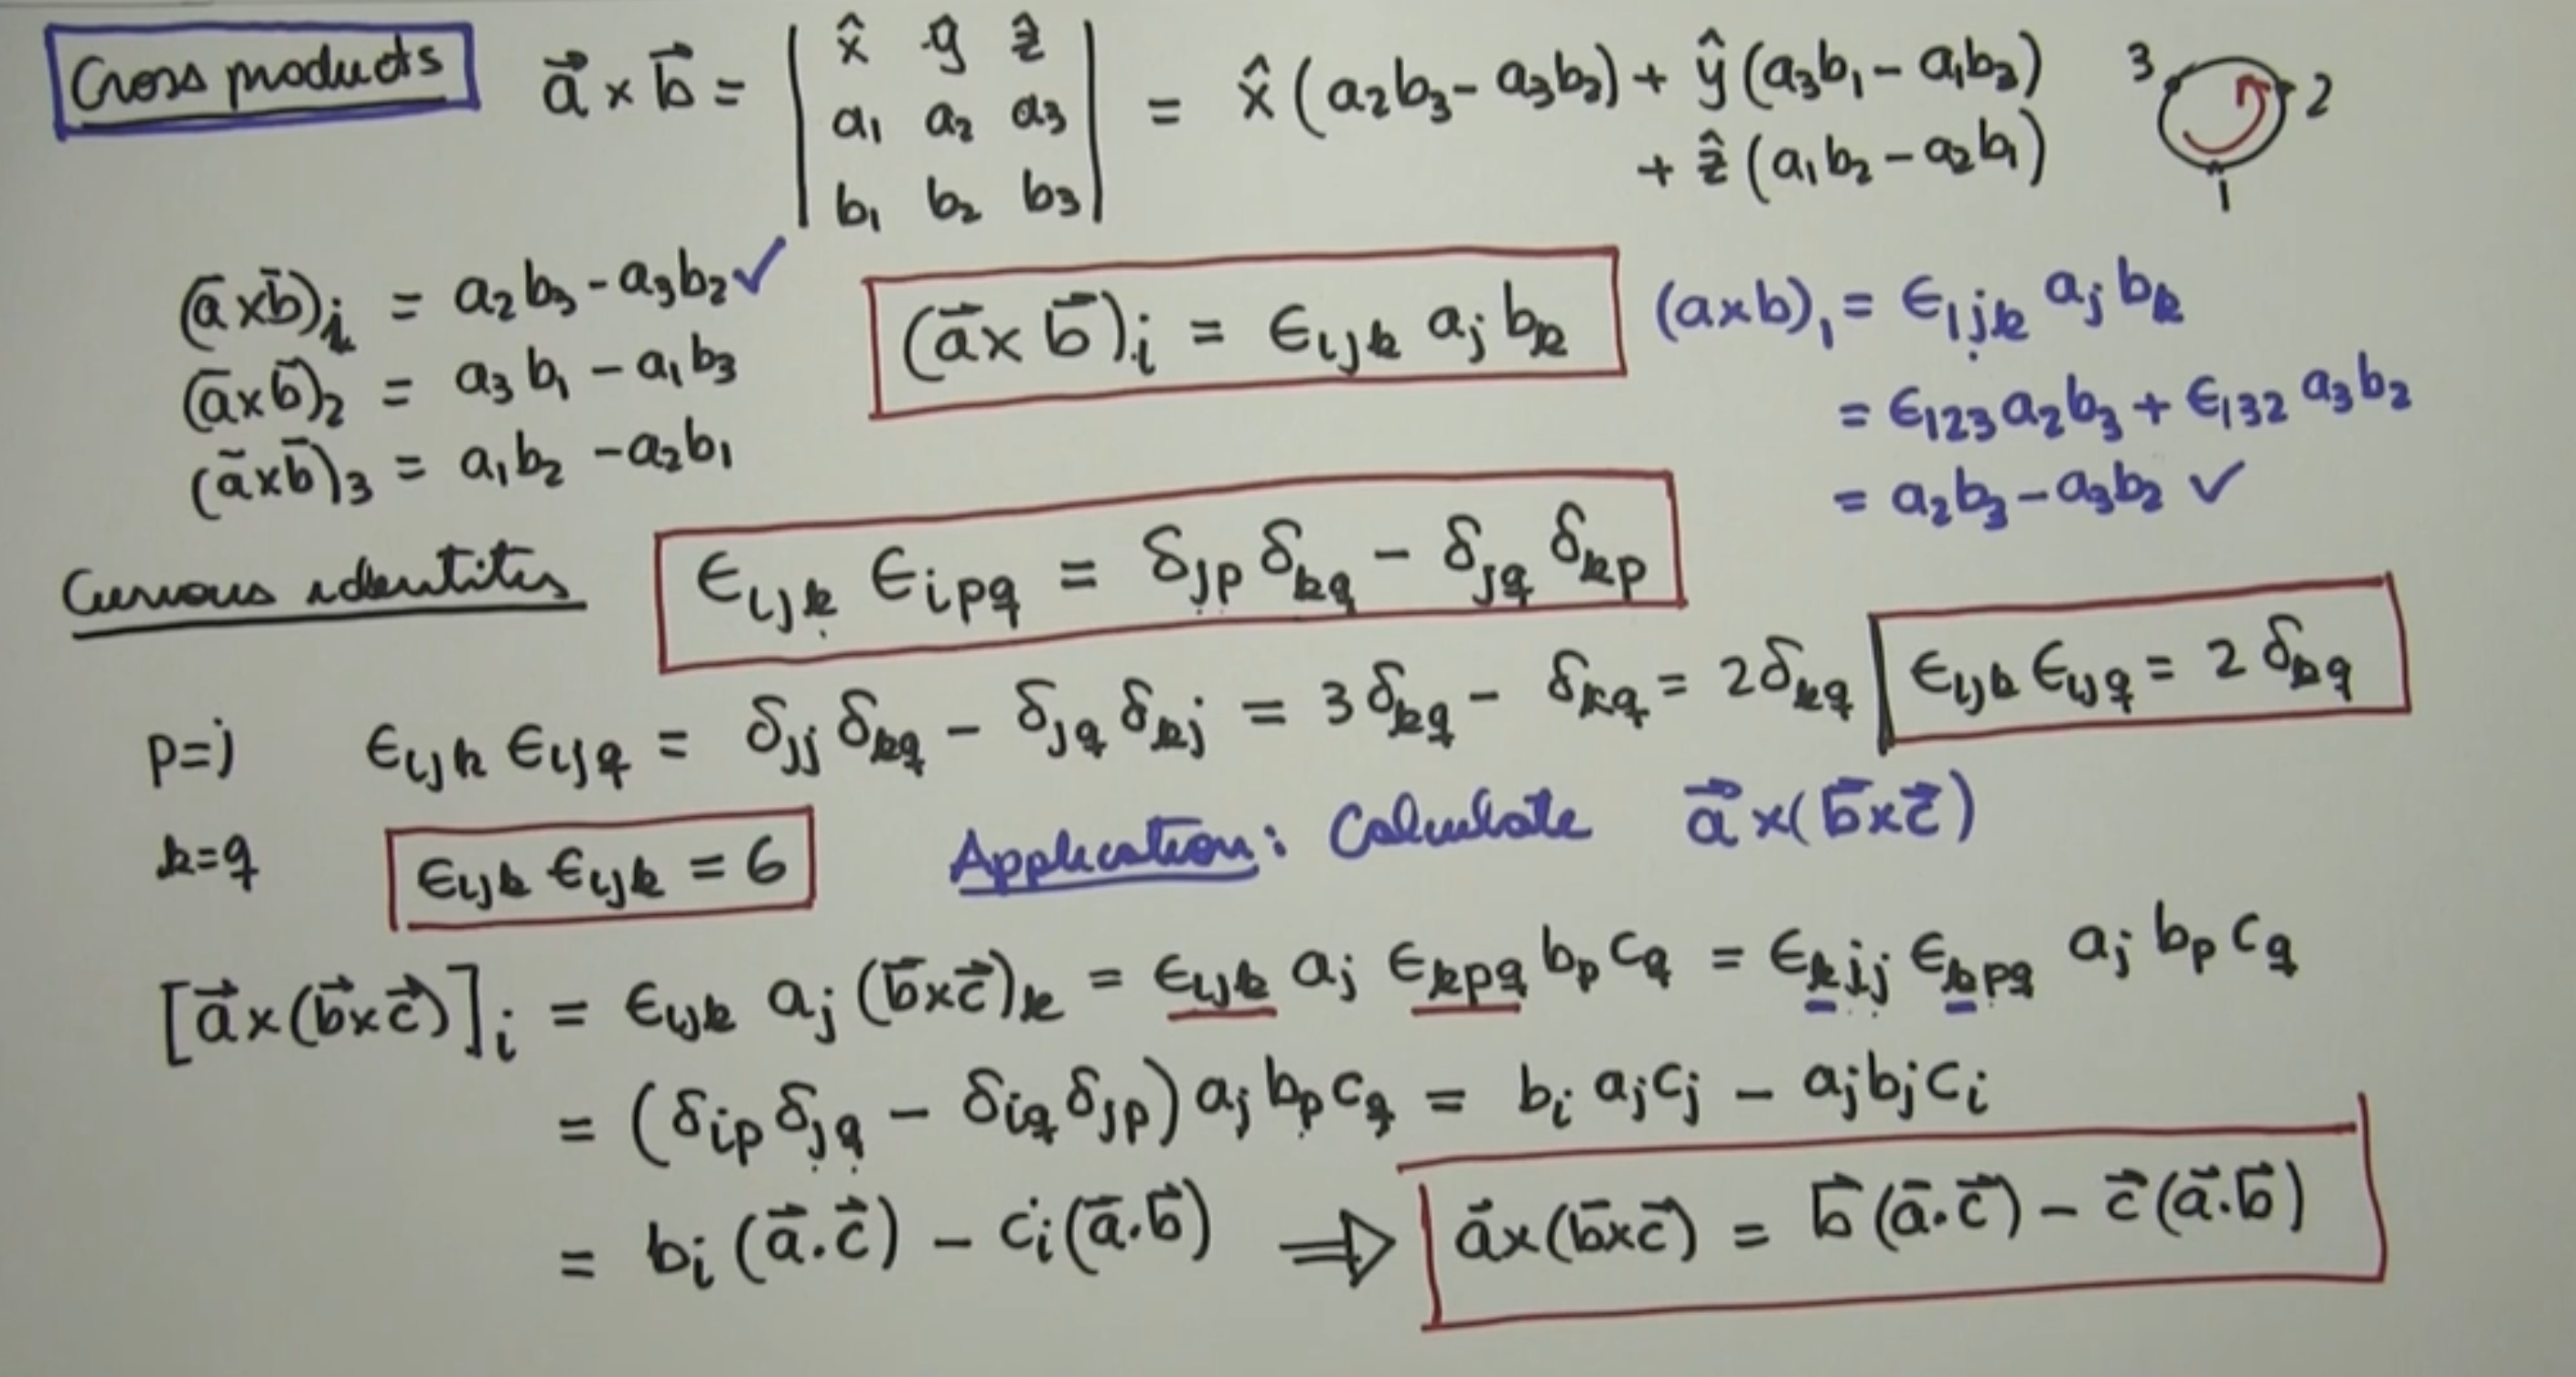 Cross products
a⃗ × b⃗ = | x̂ ŷ ẑ | = x̂ (a₂b₃ - a₃b₂) + ŷ (a₃b₁ - a₁b₃)
a₁ a₂ a₃
+ ẑ (a₁b₂ - a₂b₁)
b₁ b₂ b₃
3
2
1
(a̅×b̅)ᵢ = a₂b₃ - a₃b₂ ✓
(a̅×b̅)₂ = a₃b₁ - a₁b₃
(a̅×b̅)₃ = a₁b₂ - a₂b₁
(a⃗ × b⃗)ᵢ = ϵ_{ijk} a_j b_k
(a×b)₁ = ϵ_{1jk} a_j b_k
= ϵ₁₂₃ a₂b₃ + ϵ₁₃₂ a₃b₂
= a₂b₃ - a₃b₂ ✓
Curious identites
ϵ_{ijk} ϵ_{ipq} = δ_{jp} δ_{kq} - δ_{jq} δ_{kp}
p=j ϵ_{ijk} ϵ_{ijq} = δ_{jj} δ_{kq} - δ_{jq} δ_{kj} = 3δ_{kq} - δ_{kq} = 2δ_{kq}
ϵ_{ijk} ϵ_{ijq} = 2 δ_{kq}
k=q ϵ_{ijk} ϵ_{ijk} = 6
Application: Calculate a⃗ ×(b⃗×c⃗)
[a⃗×(b⃗×c⃗)]ᵢ = ϵ_{ijk} a_j (b⃗×c⃗)_k = ϵ_{ijk} a_j ϵ_{kpq} b_p c_q = ϵ_{kij} ϵ_{kpq} a_j b_p c_q
= (δ_{ip} δ_{jq} - δ_{iq} δ_{jp}) a_j b_p c_q = b_i a_j c_j - a_j b_j c_i
= b_i (a⃗.c⃗) - c_i (a⃗.b⃗) ⇒ a⃗×(b⃗×c⃗) = b⃗ (a⃗.c⃗) - c⃗ (a⃗.b⃗)